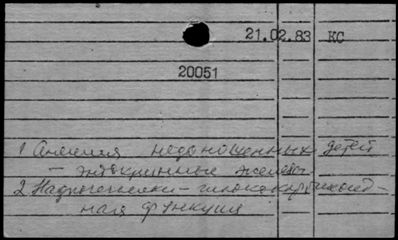 21.02.83 КС
20051
1 Анемия недоношенных детей
– эндокринные железы
2 Надпочечники – глюкокортикоид-
ная функция